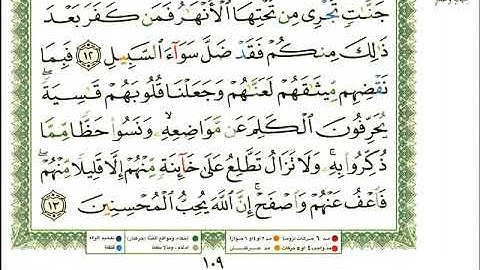 جَنَّٰتٍ تَجْرِى مِن تَحْتِهَا ٱلْأَنْهَٰرُ فَمَن كَفَرَ بَعْدَ
ذَٰلِكَ مِنكُمْ فَقَدْ ضَلَّ سَوَآءَ ٱلسَّبِيلِ ١٢ فَبِمَا
نَقْضِهِم مِّيثَٰقَهُمْ لَعَنَّٰهُمْ وَجَعَلْنَا قُلُوبَهُمْ قَٰسِيَةً ۖ
يُحَرِّفُونَ ٱلْكَلِمَ عَن مَّوَاضِعِهِۦ ۙ وَنَسُوا۟ حَظًّا مِّمَّا
ذُكِّرُوا۟ بِهِۦ ۚ وَلَا تَزَالُ تَطَّلِعُ عَلَىٰ خَآئِنَةٍ مِّنْهُمْ إِلَّا قَلِيلًا مِّنْهُمْ ۖ
فَٱعْفُ عَنْهُمْ وَٱصْفَحْ ۚ إِنَّ ٱللَّهَ يُحِبُّ ٱلْمُحْسِنِينَ ١٣
مد ٦ حركات لزوماً
تفخيم الراء
قلقلة
١٠٩